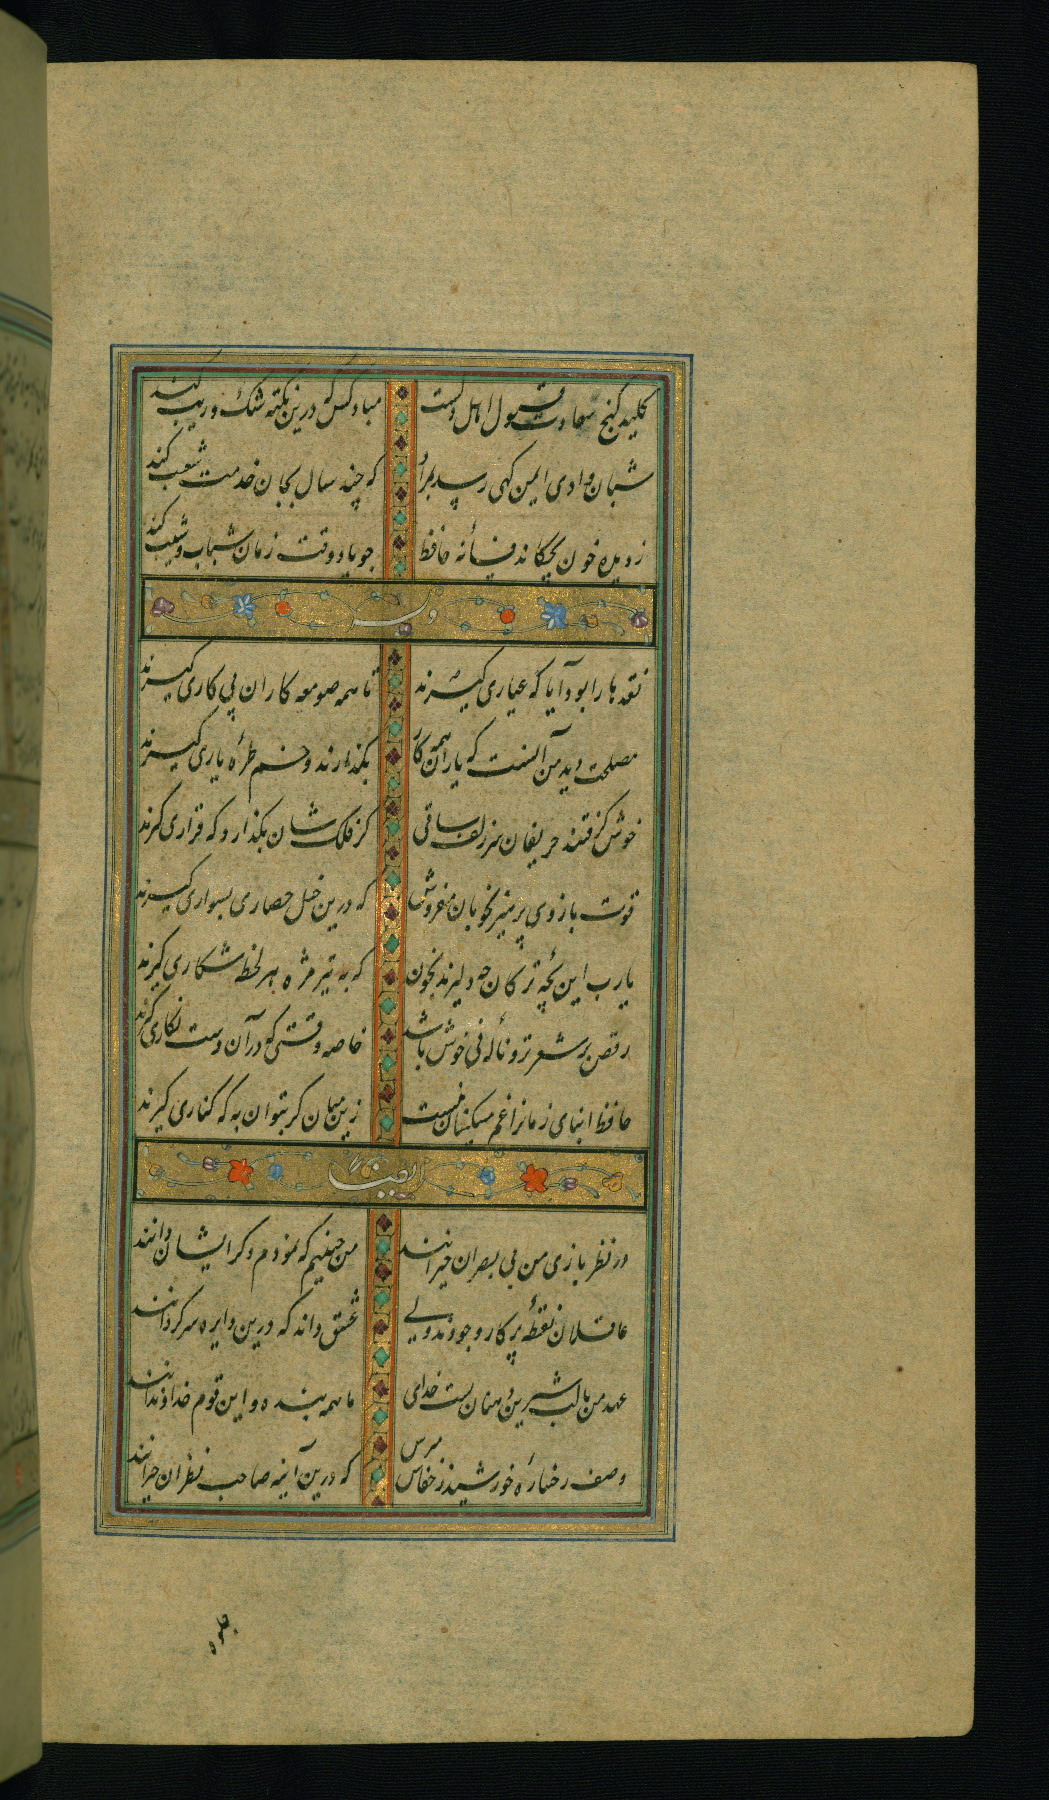 کلید گنج سعادت قبول اهل دلست مباد کس که درین نکته شک و ریب کند
شبان وادی ایمن کهی رسد بمراد که چند سال بجان خدمت شعیب کند
ز دیده خون بچکاند فسانه حافظ چو یاد وقت زمان شباب و شیب کند
وله
نقدها را بود آیا که عیاری گیرند تا همه صومعه کاران پی کاری گیرند
مصلحت دید من آنست که یاران همه کار بگذارند و خم طره یاری گیرند
خوش گرفتند حریفان سر زلف ساقی گر فلک شان بگذارد که قراری گیرند
قوت بازوی پرهیز بخوبان مفروش که درین خیل حصاری بسواری گیرند
یارب این بچه ترکان چه دلیرند بخون که به تیر مژه هر لحظه شکاری گیرند
رقص بر شعر تر و نالهٔ نی خوش باشد خاصه وقتی که در آن دست نگاری گیرند
حافظ ابنای زمانرا غم مسکینان نیست زین میان گر بتوان به که کناری گیرند
ایضا
در نظر بازی من بی بصران حیرانند من چنینم که نمودم دگر ایشان دانند
عاقلان نقطهٔ پرکار وجودند ولی عشق داند که درین دایره سرگردانند
عهد من با لب شیرین دهنان بست خدای ما همه بنده و این قوم خداوندانند
وصف رخسارهٔ خورشید ز خفاش مپرس که درین آینه صاحب نظران حیرانند
جلوه